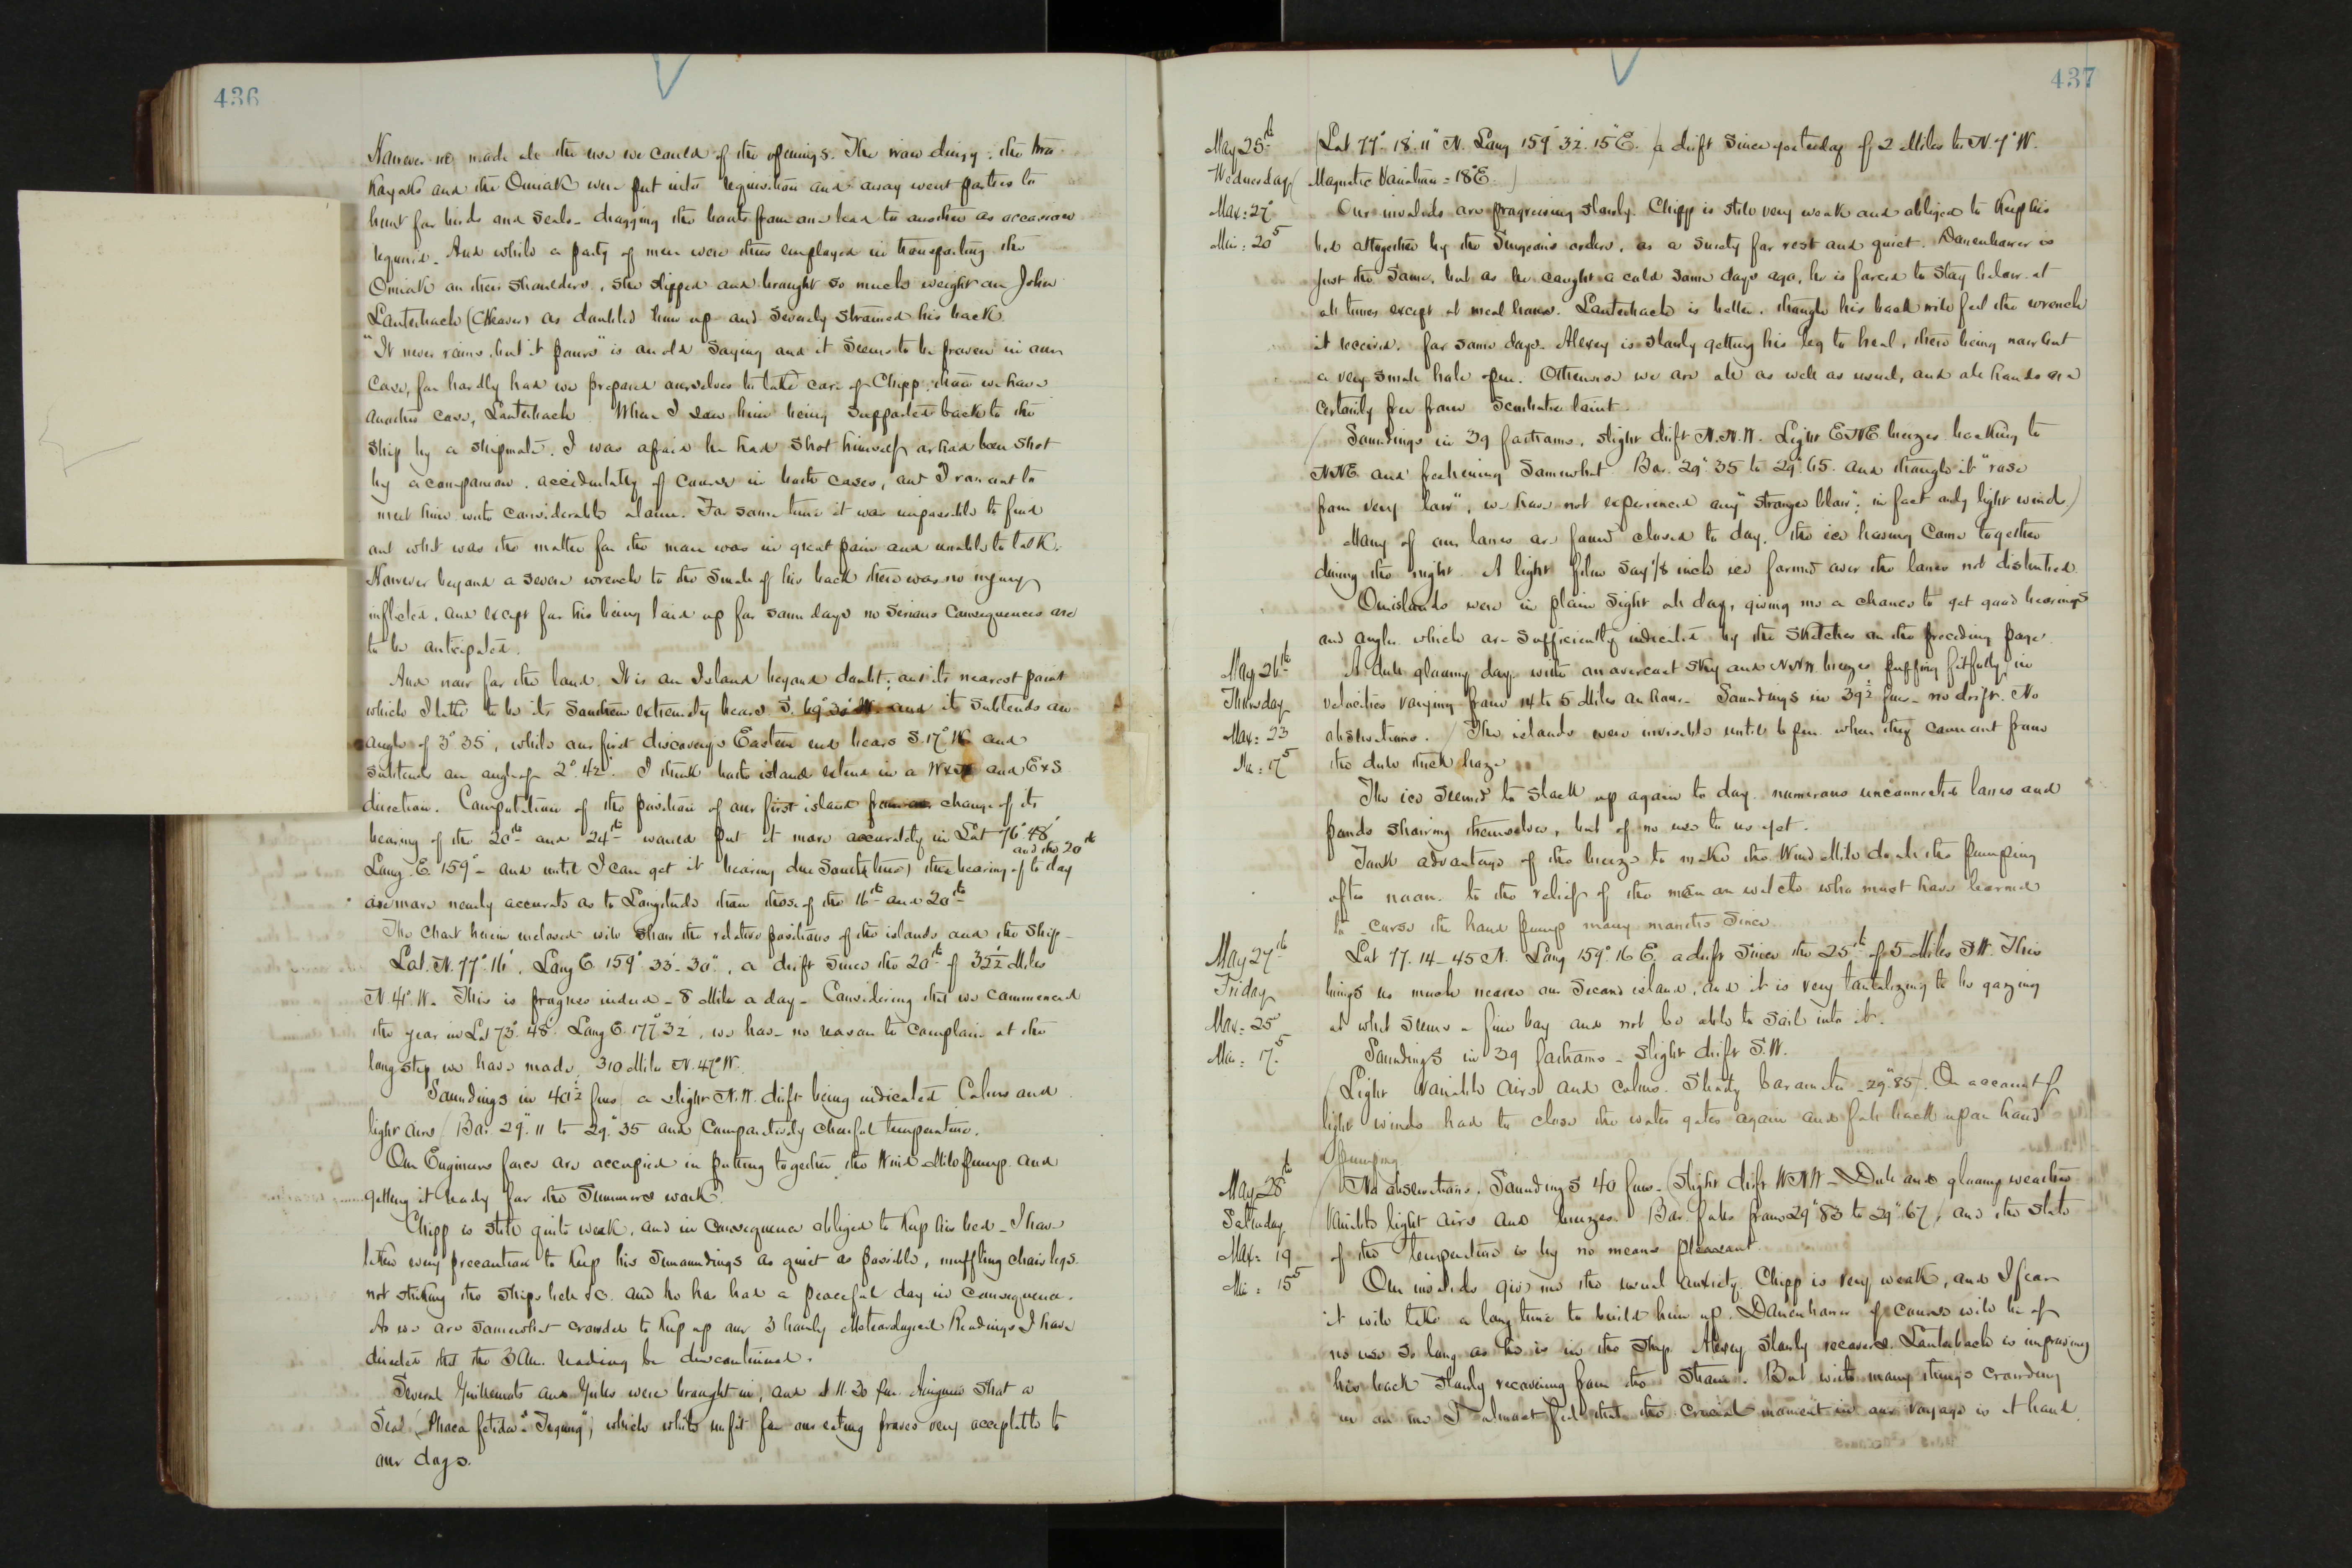 436
However we made all the use we could of the openings. The iron dingy, the two
Kayaks and the Oomiak were put into requisition and away went parties to
hunt for birds and seals - dragging the boats from one lead to another as occasion
required. And while a party of men were thus employed in transporting the
Oomiak on their shoulders, she slipped and brought so much weight on John
Lauterbach (C Heaver) as doubled him up and severely strained his back
"It never rains, but it pours" is an old saying and it seems to be proven in our
case, for hardly had we prepared ourselves to take care of Chipp, than we have
another case, Lauterbach. When I saw him being supported back to the
ship by a shipmate, I was afraid he had shot himself or had been shot
by a companion, accidentally of course in both cases, and I ran out to
meet him with considerable alarm. For some time it was impossible to find
out what was the matter for the man was in great pain and unable to talk.
However beyond a severe wrench to the small of his back there was no injury
inflicted, and except for his being laid up for some days no serious consequences are
to be anticipated.
And now for the land. It is an Island beyond doubt; and its nearest point
which I take to be its Southern extremity bears S. 69° 30' W. and it subtends an
angle of 3° 35', while our first discovery's Eastern end bears S. 17° W. and
subtends an angle of 2° 42'. I think both island extend in a and ExS
direction. Computation of the position of our first island from change of its
bearing of the 20th and 24th would put it more accurately in Lat 76° 48'
and the 20th
Long. E 159° - and until I can get it bearing due South (true) the bearing of to day
are more nearly accurate as to Longitude than those of the 16th and 20th
The chart herein enclosed will show the relative positions of the islands and the ship -
Lat. N. 77° 16', Long E 159° 33'. 30", a drift since the 20th of 32½ Miles
N. 41° W. This is progress indeed - 8 Miles a day - Considering that we commenced
the year in Lat 73° 48' Long E. 177° 32', we have no reason to complain at the
long step we have made, 310 Miles N. 47° W.
Soundings in 40½ fms, a slight N.W. drift being indicated Calms and
light airs (Bar. 29".11 to 29".35 and) Comparatively cheerful temperature.
Our Engineers force are occupied in putting together the Wind Mill pump and
getting it ready for the Summers work.
Chipp is still quite weak, and in consequence obliged to keep his bed - I have
taken every precaution to keep his surroundings as quiet as possible, muffling chair legs.
not striking the ships bell &c. and he has had a peaceful day in consequence.
As we are somewhat crowded to keep up our 3 hourly Meteorological Readings I have
directed that the 3 Am. reading be discontinued.
Several Guillemots and Gulls were brought in, and at 11.30 pm. Aniguin shot a
Seal (Phoca fetida), which while unfit for our eating proves very acceptable to
our dogs.
437
May 25th
Wednesday
Max: 27°
Min: 20.5
(Lat 77° 18'. 11" N. Long 159° 32'. 15" E.) a drift since yesterday of 2 Miles to N. 7° W.
(Magnetic Variation = 18° E.)
Our invalids are progressing slowly. Chipp is still very weak and obliged to keep his
bed altogether by the Surgeon's orders, as a surety for rest and quiet. Danenhower is
just the same, but as he caught a cold some days ago, he is forced to stay below at
all times except at meal hours. Lauterbach is better, though his back will feel the wrench
it received for some days. Alexey is slowly getting his leg to heal, there being now but
a very small hole open. Otherwise we are all as well as usual, and all hands are
certainly free from Scorbutic taint.
(Soundings in 39 fathoms, slight drift N.N.W. Light ENE breezes backing to
NNE and freshening somewhat. Bar. 29".35 to 29".65. and though it "rose
from very low", we have not experienced any "stronger blow"; in fact only light wind.)
Many of our lanes are found closed to day, the ice having come together
during the night. A light film say 1/8 inch ice formed over the lanes not disturbed.
Our islands were in plain sight all day, giving me a chance to get good bearings
and angles which are sufficiently indicated by the sketches on the preceding page.
May 26th
Thursday
Max: 23
Min: 17.5
A dull gloomy day with an overcast sky and NNW. breezes puffing fitfully in
velocities varying from 14 to 5 Miles an hour - Soundings in 39½ fms - no drift. No
observations.) The islands were invisible until 6 pm. when they came out from
the dull thick haze.
The ice seemed to slack up again to day. numerous unconnected lanes and
ponds showing themselves, but of no use to us yet.
Took advantage of the breeze to make the Wind Mill do all the pumping
after noon. to the relief of the men on watch who must have learned
to curse the hand pump many months since.
May 27th
Friday
Max: 25°
Min: 17.5
Lat 77.14 - 45 N. Long 159° 16 E. a drift since the 25th of 5 Miles S.W. This
brings us much nearer our second island, and it is very tantalizing to be gazing
at what seems a fine bay and not be able to sail into it.
Soundings in 39 fathoms - slight drift S.W.
(Light variable airs and calms. Steady barometer - 29".85). On account of
light winds had to close the water gates again and fall back upon hand
pumping
May 28th
Saturday
Max: 19
Min: 15.5
(No observations. Soundings 40 fms - slight drift WNW - Dull and gloomy weather
Variable light airs and breezes. Bar. falls from 29".83 to 29".67, and the state
of the temperature is by no means pleasant.
Our invalids give me the usual anxiety. Chipp is very weak, and I fear
it will take a long time to build him up. Danenhower of course will be of
no use so long as he is in the ship. Alexey slowly recovers. Lauterbach is improving
his back slowly recovering from the strain. But with many things crowding
in on me I almost feel that the crucial moment in our voyage is at hand.